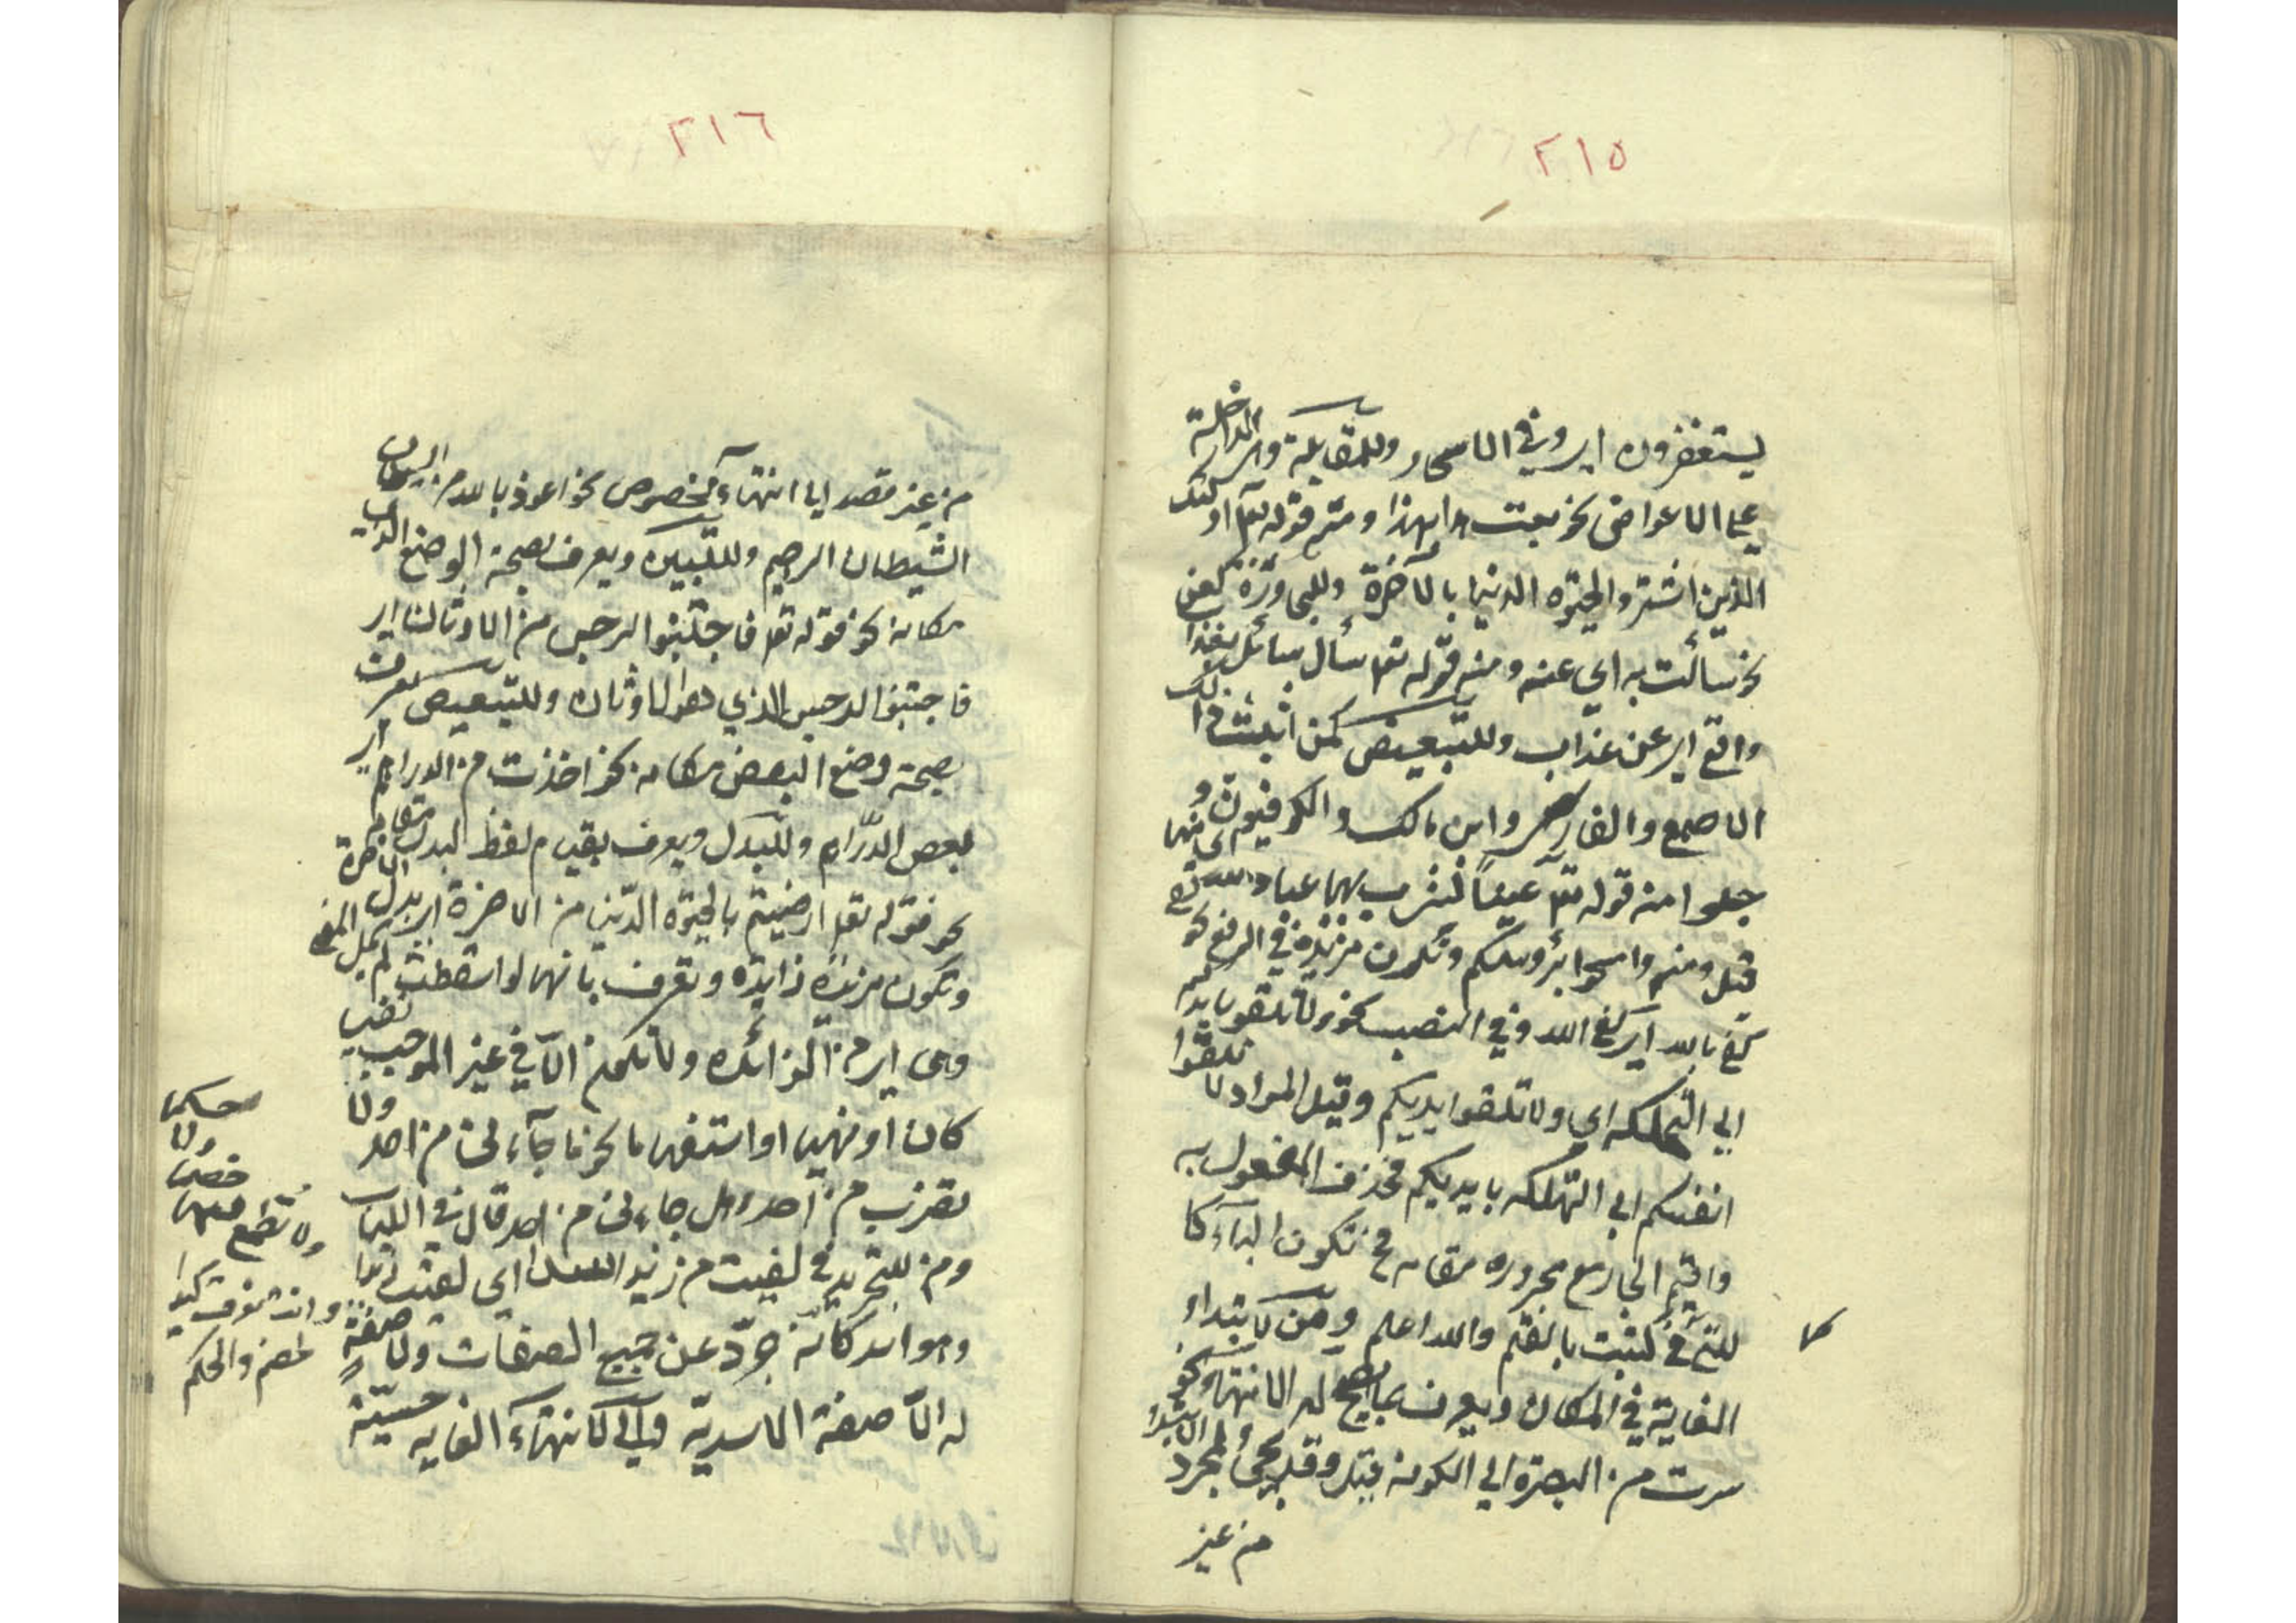 ٢١٥
يستغفرون اي وفي الاسحار وللمقابلة وهي الداخلة
علي الاعواض نحو بعت هذا بهذا ومنه قوله تع اولئك
الذين اشتروا الحيوة الدنيا بالآخرة وللمجاوزة كعن
نحو سألت به اي عنه ومنه قوله تع سأل سائل بعذاب
واقع اي عن عذاب وللتبعيض كمن اثبت ذلك
الاصمعي والفارسي وابن مالك والكوفيون و
جعلوا منه قوله تع عينًا يشرب بها عباد الله اي منها
قيل ومنه وامسحوا برؤسكم وتكون مزيدة في الرفع نحو
كفي بالله اي كفي الله وفي النصب نحو ولا تلقوا بايديكم
الي التهلكه اي ولا تلقوا ايديكم وقيل المراد لا تلقوا
انفسكم الي التهلكه بايديكم فحذف المفعول به
واقيم الجار مع مجروره مقامه فح تكون الباء كا
للتي في كتبت بالقلم والله اعلم ومن لابتداء
الغاية في المكان ويعرف بما يصح له الانتهاء نحو
سرت من البصرة الي الكوفه قيل وقد يجئ لمجرد الابتداء
من غير
٢١٦
من غير قصد الي انتهاء مخصوص نحو اعوذ بالله من
الشيطان الرجيم وللتبيين ويعرف بصحة الوضع الذي
مكانه نحو قوله تع فاجتنبوا الرجس من الاوثان اي
فاجتنبوا الرجس الذي هو الاوثان وللتبعيض يعرف
بصحة وضع البعض مكانه نحو اخذت من الدراهم اي
بعض الدراهم وللبدل ويعرف بقيام لفظ البدل مقامه
نحو قوله تع ارضيتم بالحيوة الدنيا من الاخرة اي بدل الآخرة
وتكون مزيده زايده وتعرف بانها لو اسقطت لم يختل المعني
وهي اي من الزائده ولا تكون الا في غير الموجب نفيا
كان او نهيا او استفهاما نحو ما جاءني من احد ولا
تضرب من احد وهل جاءني من احد قال في اللباب
ومن للتجريد في لقيت من زيد الاسد اي لقيت زيدا
وهو اسد كانه جرد عن جميع الصفات ولا صفة
له الا صفة الاسدية والي لانتهاء الغايه حسية
ولا